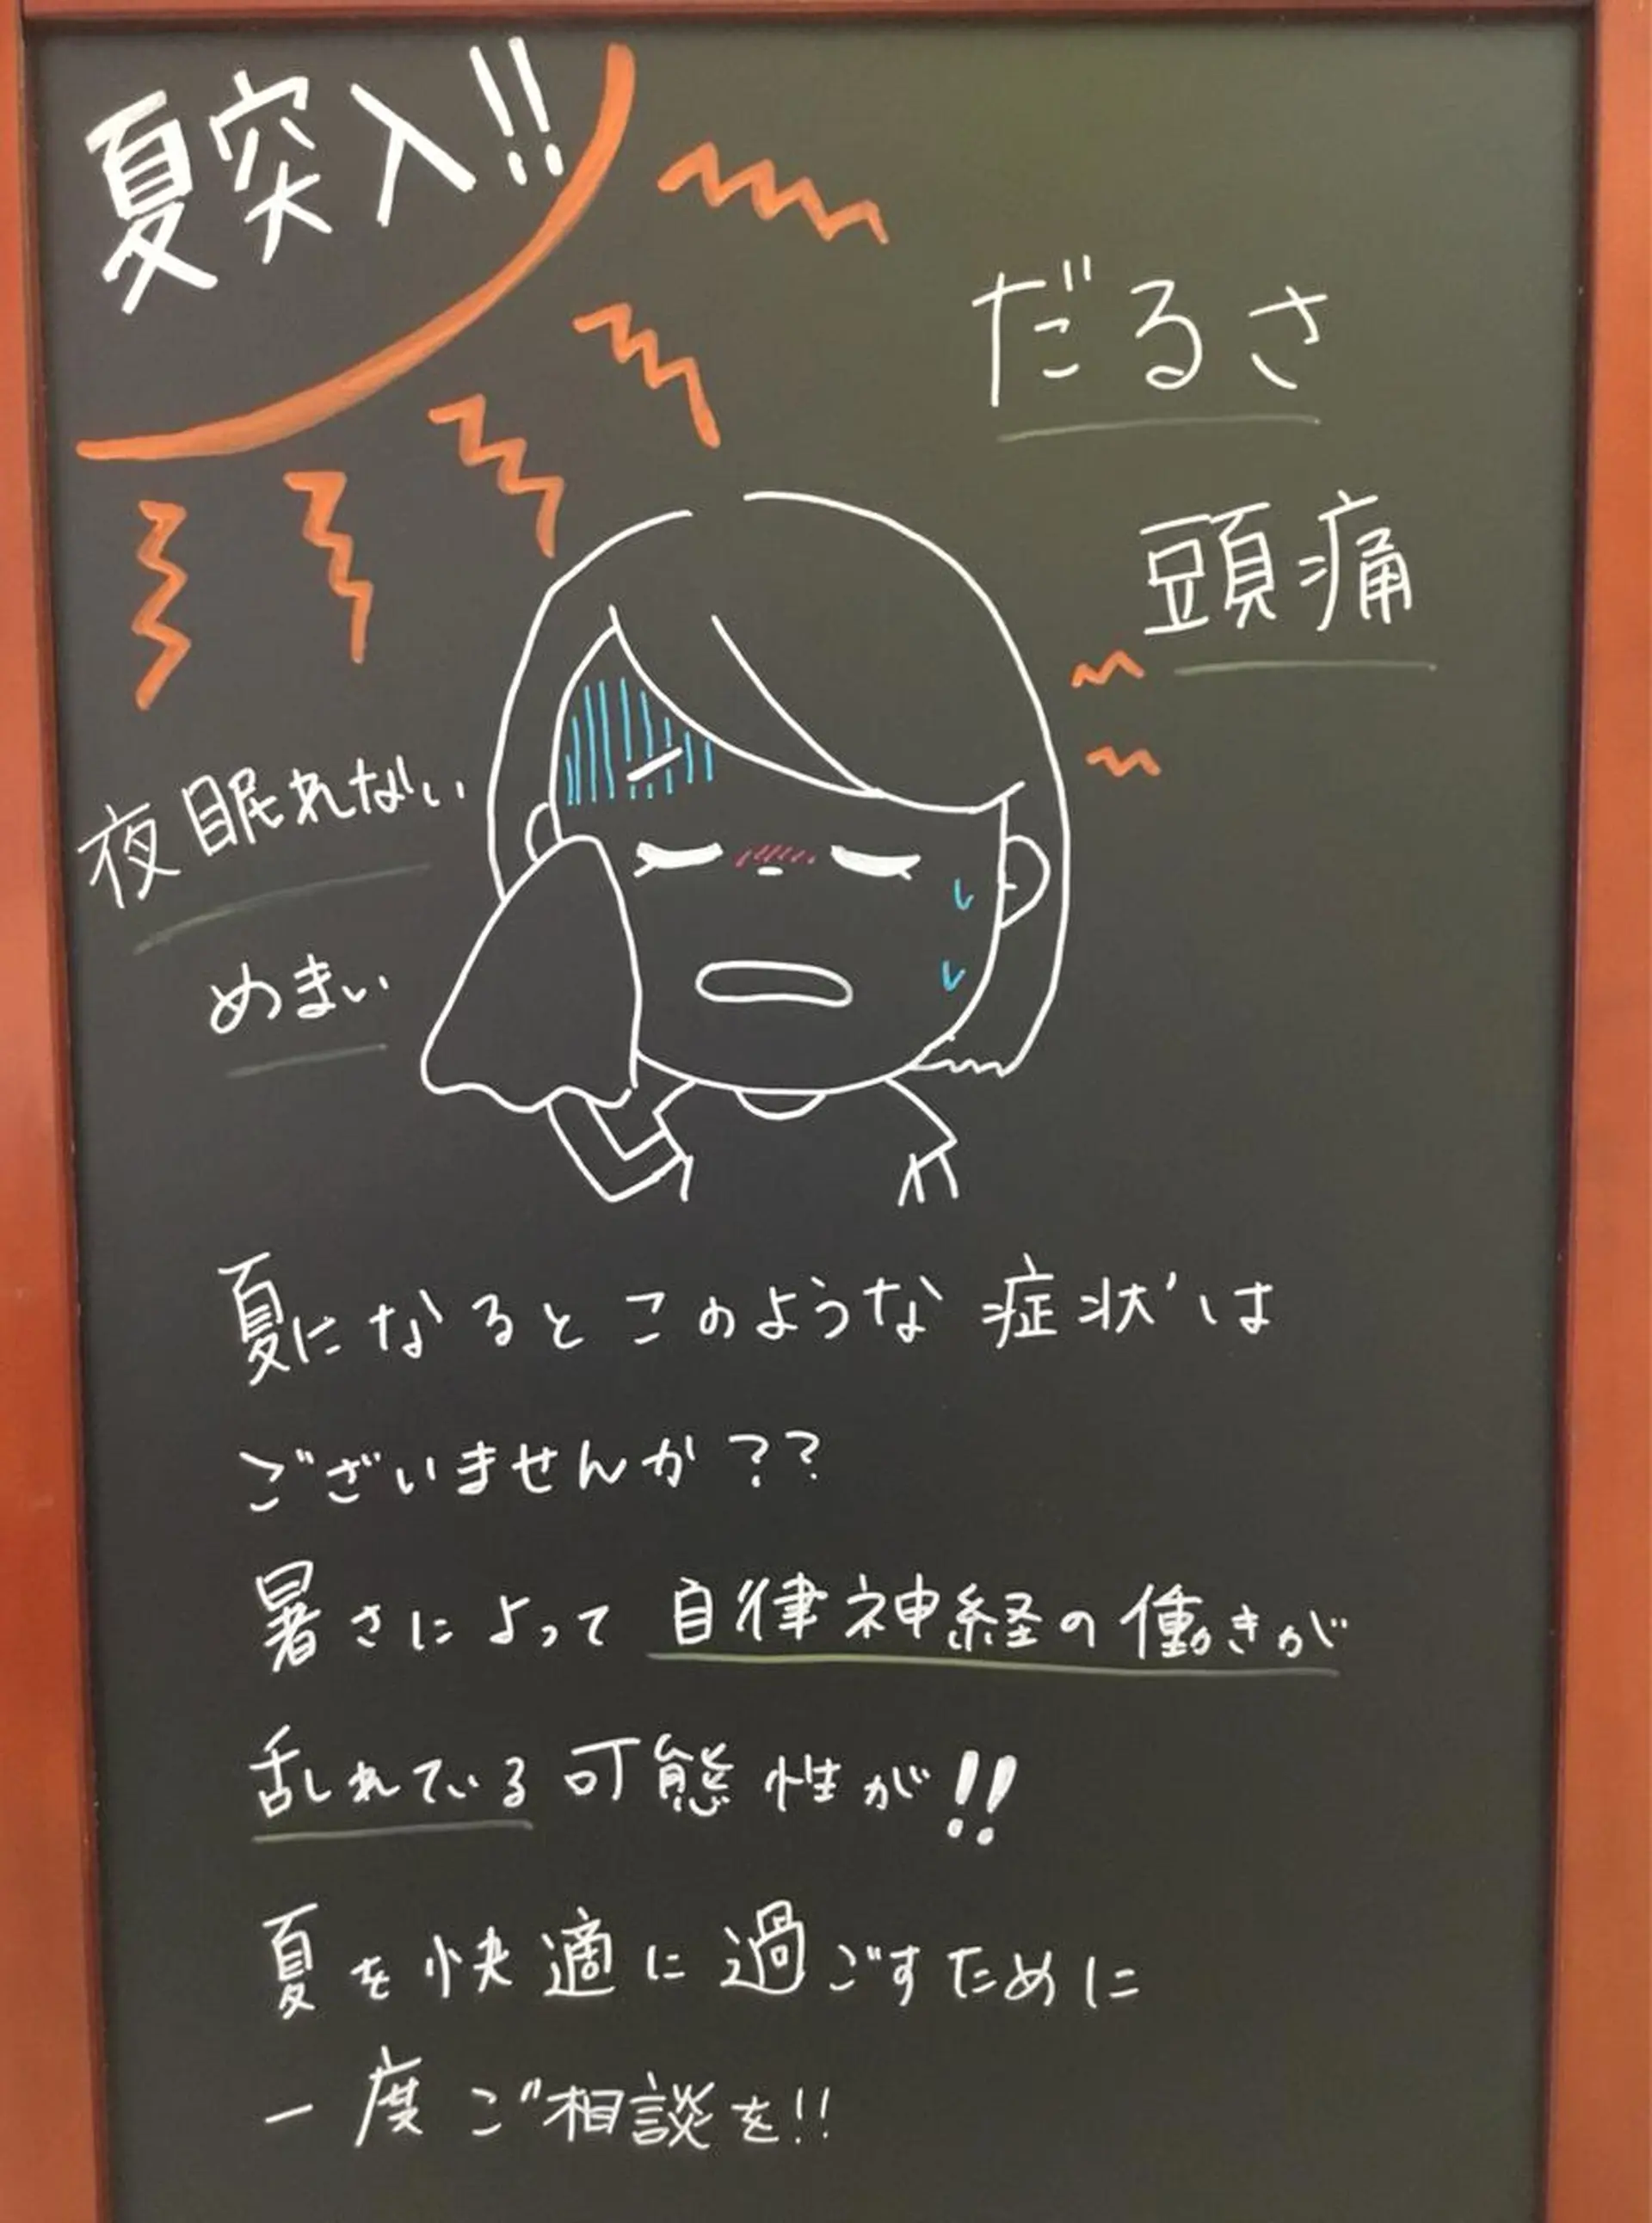 夏突入!!
だるさ
頭痛
夜眠れない
めまい
夏になるとこのような症状は
ございませんか??
暑さによって自律神経の働きが
乱れている可能性が!!
夏を快適に過ごすために
一度ご相談を!!